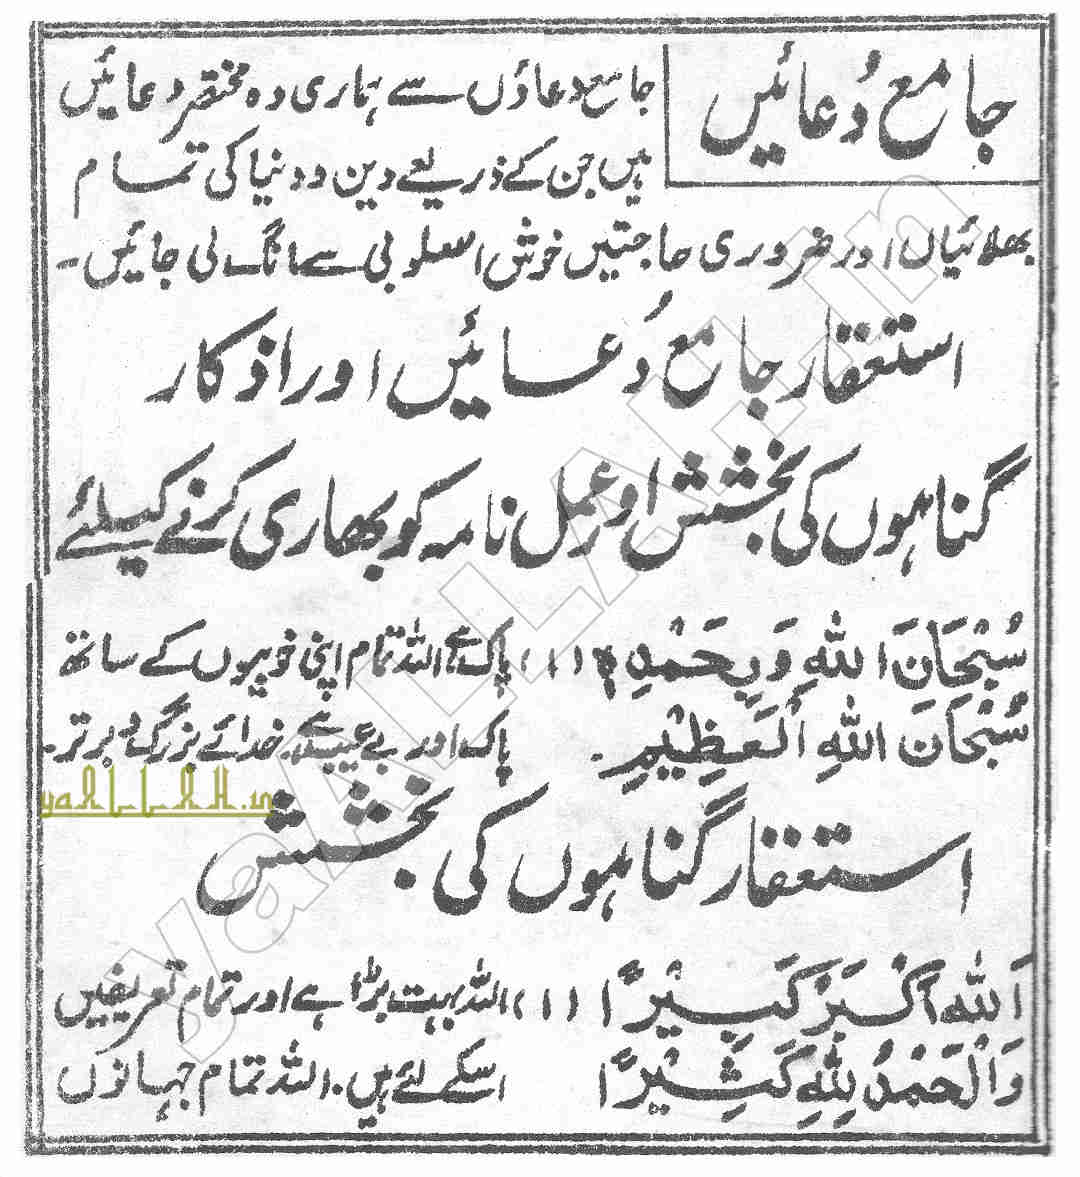 جامع دُعائیں
جامع دعاؤں سے ہماری وہ مختصر دعائیں
ہیں جن کے ذریعے دین و دنیا کی تمام
بھلائیاں اور ضروری حاجتیں خوش اسلوبی سے مانگ لی جائیں۔
استغفار جامع دُعائیں اور اذکار
گناہوں کی بخشش اور عمل نامہ کو بھاری کرنے کیلئے
سُبْحَانَ اللهِ وَبِحَمْدِهٖ (۱) پاک ہے اللہ تمام اپنی خوبیوں کے ساتھ
سُبْحَانَ اللهِ الْعَظِيْمِ۔ پاک اور بے عیب ہے، خدائے بزرگ و برتر۔
yaALLAH.in
استغفار گناہوں کی بخشش
اَللهُ اَكْبَرُ كَبِيْرًا (۱) اللہ بہت بڑا ہے اور تمام تعریفیں
وَالْحَمْدُ لِلّٰهِ كَثِيْرًا اسکے لئے ہیں۔ اللہ تمام جہانوں
yaALLAH.in